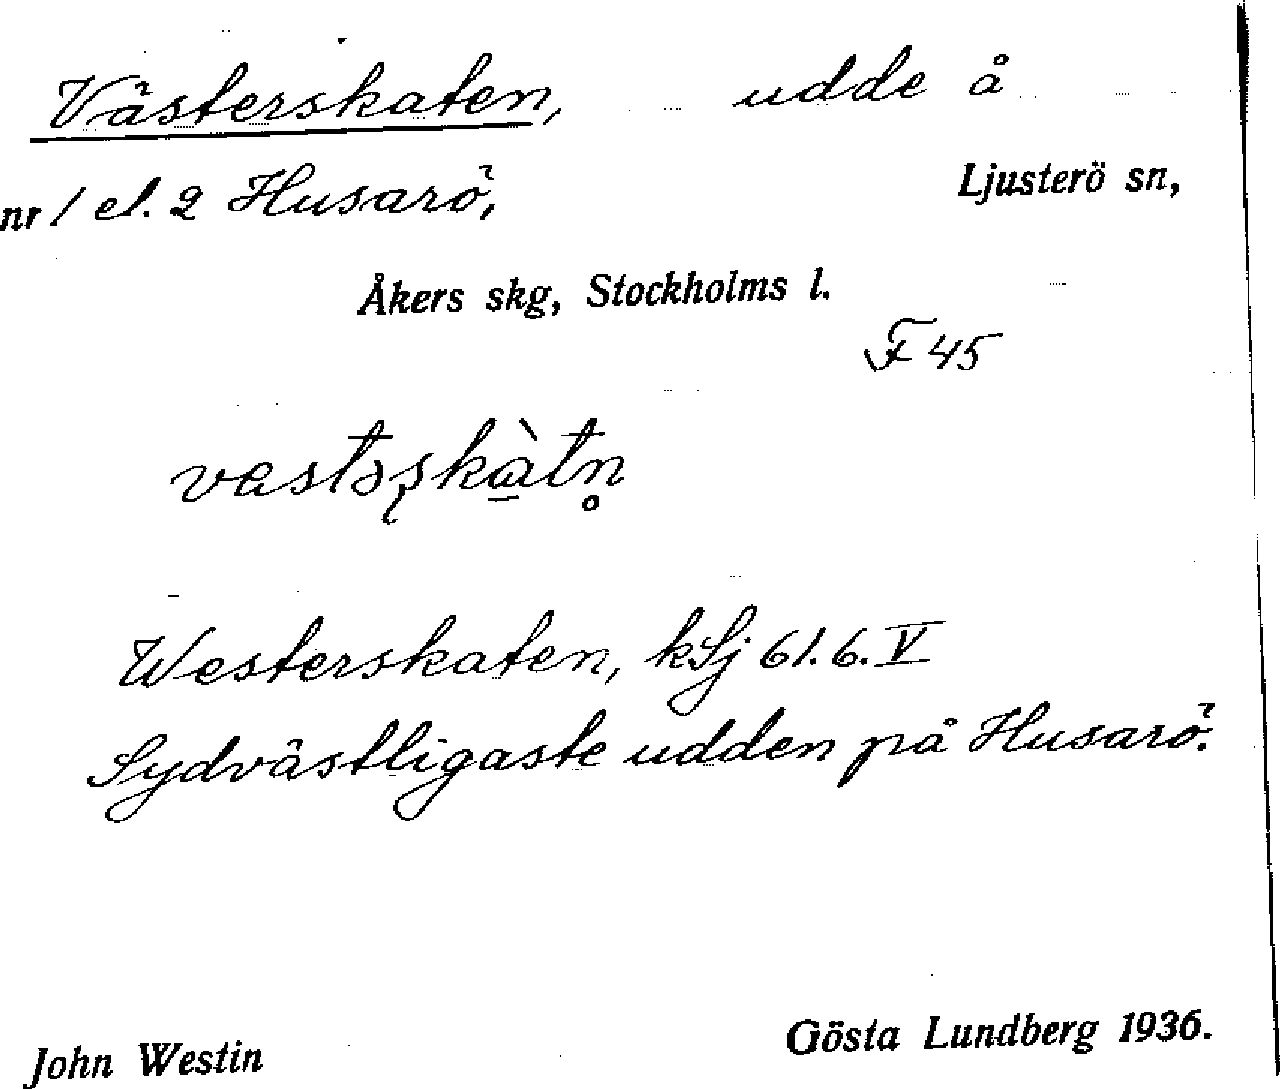 Västerskaten, udde å
nr 1 el. 2 Husarö, Ljusterö sn,
Åkers skg, Stockholms l.
F 45
vastəʂkàtn̥
Westerskaten, kSj 61.6.V
Sydvästligaste udden på Husarö.
John Westin Gösta Lundberg 1936.